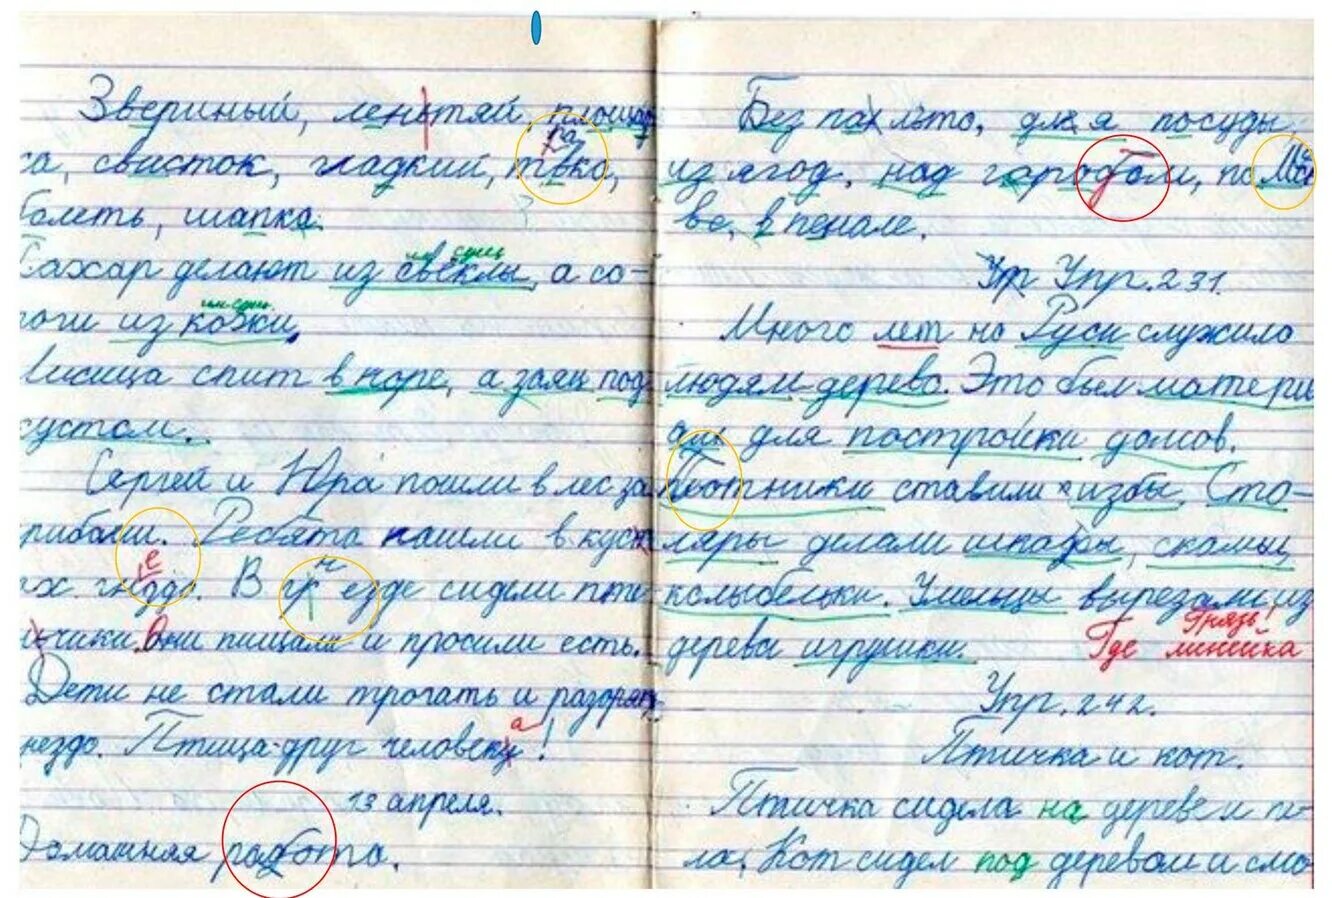 Звериный, лентяй, площад
ка, свисток, гладкий, трава,
болеть, шапка.
Сахар делают из свеклы, а са-
поги из кожи.
Лисица спит в норе, а заяц под
кустом.
Сергей и Юра пошли в лес за
грибами. Ребята нашли в куст
ах гнездо. В гнезде сидели пти-
чики. Они пищали и просили есть.
Дети не стали трогать и разорять
гнездо. Птица-друг человека!
13 апреля.
Домашняя работа.
Без пальто, для посуды,
из ягод, над городом, по Моск
ве, в пенале.
Упр. 231.
Много лет на Руси служило
людям дерево. Это был матери
ал для постройки домов.
Плотники ставили избы. Сто-
ляры делали шкафы, скамьи,
колыбельки. Умельцы вырезали из
дерева игрушки.
Грязь!
Где линейка
Упр. 242.
Птичка и кот.
Птичка сидела на дереве и пе-
ла. Кот сидел под деревом и смо